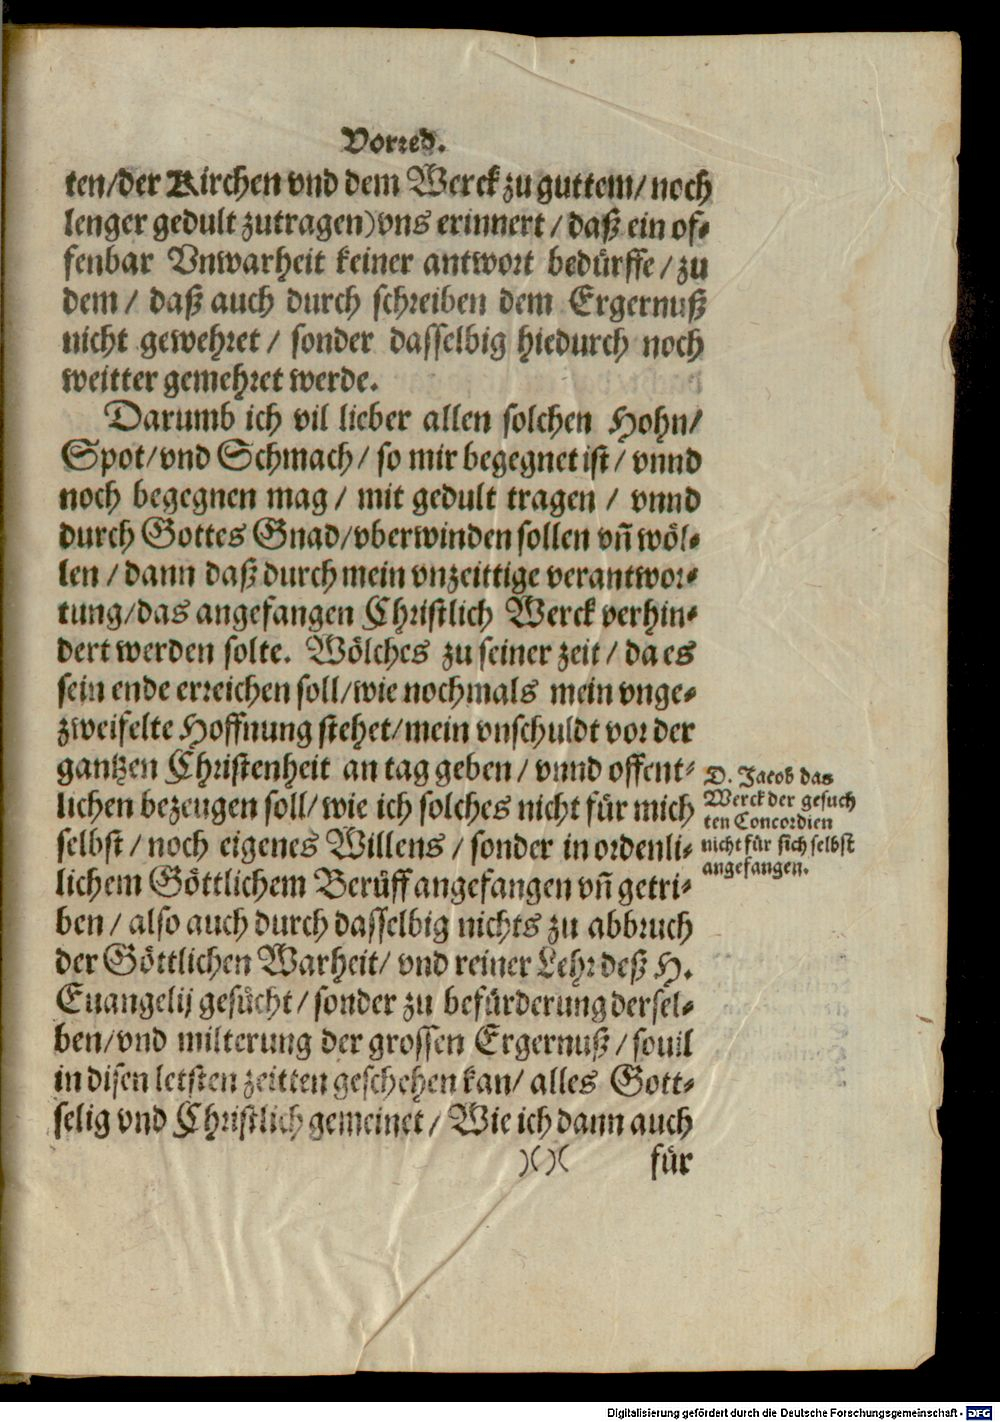 Vorred.
ten/der Kirchen vnd dem Werck zu guttem/ noch
lenger gedult zutragen) vns erinnert / daß ein of-
fenbar Vnwarheit keiner antwort bedürffe / zu
dem / daß auch durch schreiben dem Ergernuß
nicht gewehret / sonder dasselbig hiedurch noch
weitter gemehret werde.
Darumb ich vil lieber allen solchen Hohn/
Spot/vnd Schmach / so mir begegnet ist / vnnd
noch begegnen mag / mit gedult tragen / vnnd
durch Gottes Gnad/vberwinden sollen vñ wöl-
len / dann daß durch mein vnzeittige verantwor-
tung/das angefangen Christlich Werck verhin-
dert werden solte. Wölches zu seiner zeit / da es
sein ende erreichen soll/wie nochmals mein vnge-
zweifelte Hoffnung stehet/mein vnschuldt vor der
gantzen Christenheit an tag geben / vnnd offent-
lichen bezeugen soll/ wie ich solches nicht für mich
selbst / noch eigenes Willens / sonder in ordenli-
lichem Göttlichem Berüff angefangen vñ getri-
ben / also auch durch dasselbig nichts zu abbruch
der Göttlichen Warheit/ vnd reiner Lehr deß H.
Euangelij gesücht / sonder zu befürderung dersel-
ben/vnd milterung der grossen Ergernuß / souil
in disen letsten zeitten geschehen kan/ alles Gott-
selig vnd Christlich gemeinet / Wie ich dann auch
)( )( für
D. Jacob das
Werck der gesuch
ten Concordien
nicht für sich selbst
angefangen.
Digitalisierung gefördert durch die Deutsche Forschungsgemeinschaft - DFG